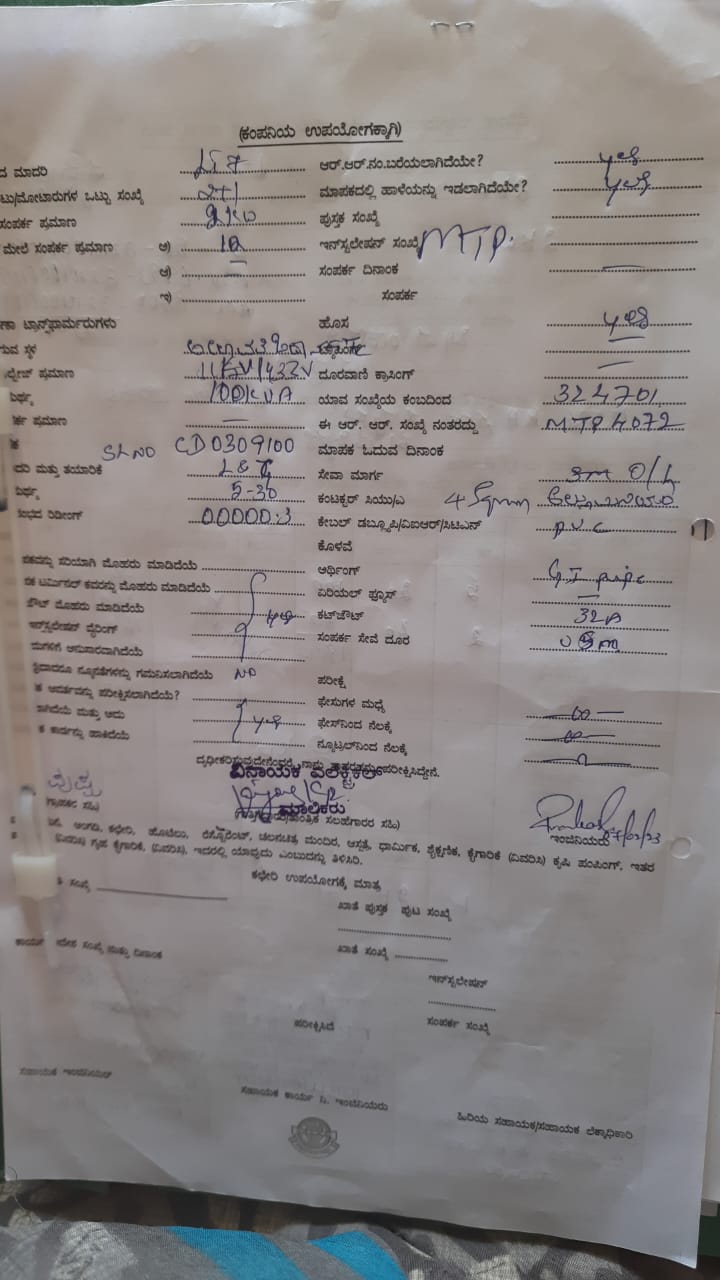 (ಕಂಪನಿಯ ಉಪಯೋಗಕ್ಕಾಗಿ)
ದ ಮಾದರಿ LT 7 ಆರ್.ಆರ್.ನಂ.ಬರೆಯಲಾಗಿದೆಯೇ? yes
ಟು/ಮೋಟಾರುಗಳ ಒಟ್ಟು ಸಂಖ್ಯೆ ಮಾಪಕದಲ್ಲಿ ಹಾಳೆಯನ್ನು ಇಡಲಾಗಿದೆಯೇ? yes
ಸಂಪರ್ಕ ಪ್ರಮಾಣ ಪುಸ್ತಕ ಸಂಖ್ಯೆ
ಮೇಲೆ ಸಂಪರ್ಕ ಪ್ರಮಾಣ ಅ) ಇನ್‌ಸ್ಟಲೇಷನ್ ಸಂಖ್ಯೆ MTP.
ಆ) — ಸಂಪರ್ಕ ದಿನಾಂಕ —
ಇ) ಸಂಪರ್ಕ
ಣಾ ಟ್ರಾನ್ಸ್‌ಫಾರ್ಮರುಗಳು ಹೊಸ yes
ರುವ ಸ್ಥಳ
ವೋಲ್ಟೇಜ್ ಪ್ರಮಾಣ 11KV/433V ದೂರವಾಣಿ ಕ್ರಾಸಿಂಗ್ —
100KVA ಯಾವ ಸಂಖ್ಯೆಯ ಕಂಬದಿಂದ 324701
ರ್ಕ ಪ್ರಮಾಣ — ಈ ಆರ್. ಆರ್. ಸಂಖ್ಯೆ ನಂತರದ್ದು MTP 4072
SLNO CD0309100 ಮಾಪಕ ಓದುವ ದಿನಾಂಕ
ದರಿ ಮತ್ತು ತಯಾರಿಕೆ L&T ಸೇವಾ ಮಾರ್ಗ SM O/H
5-30 ಕಂಟಕ್ಟರ್ ಸಿಯು/ಎ 4 Sqmm
ರಂಭದ ರೀಡಿಂಗ್ 00000.3 ಕೇಬಲ್ ಡಬ್ಲ್ಯೂಪಿ/ವಿಐಆರ್/ಸಿಟಿಎಸ್ PVC
ಕೊಳವೆ
ಪಕವನ್ನು ಸರಿಯಾಗಿ ಮೊಹರು ಮಾಡಿದೆಯೆ ಅರ್ಥಿಂಗ್ G.I pipe
ಪಕ ಟರ್ಮಿನಲ್ ಕವರನ್ನು ಮೊಹರು ಮಾಡಿದೆಯೆ ಏರಿಯಲ್ ಫ್ಯೂಸ್ —
ಔಟ್ ಮೊಹರು ಮಾಡಿದೆಯೆ yes ಕಟ್‌ಔಟ್ 32A
ಇನ್‌ಸ್ಟಲೇಷನ್ ವೈರಿಂಗ್ ಸಂಪರ್ಕ ಸೇವೆ ದೂರ
ಮಗಳಿಗೆ ಅನುಸಾರವಾಗಿದೆಯೆ
ನ್ಯೂನತೆಗಳನ್ನು ಗಮನಿಸಲಾಗಿದೆಯೆ NO ಪರೀಕ್ಷೆ
ಪರೀಕ್ಷಿಸಲಾಗಿದೆಯೆ? ಫೇಸುಗಳ ಮಧ್ಯೆ
ರಾಗಿದೆಯೆ ಮತ್ತು ಅದು yes ಫೇಸ್‌ನಿಂದ ನೆಲಕ್ಕೆ
ಕ ಕಾರ್ಡನ್ನು ಹಾಕಿದೆಯೆ ನ್ಯೂಟ್ರಲ್‌ನಿಂದ ನೆಲಕ್ಕೆ
ವಿನಾಯಕ ಎಲೆಕ್ಟ್ರಿಕಲ್
ಮಾಲಿಕರು
(ಗ್ರಾಹಕರ ಸಹಿ) ಸಲಹೆಗಾರರ ಸಹಿ) ಇಂಜಿನಿಯರು
ಅಂಗಡಿ, ಕಛೇರಿ, ಹೊಟೆಲು, ರೆಸ್ಟೊರೆಂಟ್, ಚಲನಚಿತ್ರ ಮಂದಿರ, ಆಸ್ಪತ್ರೆ, ಧಾರ್ಮಿಕ, ಶೈಕ್ಷಣಿಕ, ಕೈಗಾರಿಕೆ (ವಿವರಿಸಿ) ಕೃಷಿ ಪಂಪಿಂಗ್, ಇತರ
(ವಿವರಿಸಿ) ಗೃಹ ಕೈಗಾರಿಕೆ, (ವಿವರಿಸಿ), ಇದರಲ್ಲಿ ಯಾವುದು ಎಂಬುದನ್ನು ತಿಳಿಸಿರಿ.
ಕಛೇರಿ ಉಪಯೋಗಕ್ಕೆ ಮಾತ್ರ
ಸಂಖ್ಯೆ ಖಾತೆ ಪುಸ್ತಕ ಪುಟ ಸಂಖ್ಯೆ
ಖಾತೆ ಸಂಖ್ಯೆ
ಕಾರ್ಯ ಆದೇಶ ಸಂಖ್ಯೆ ಮತ್ತು ದಿನಾಂಕ
ಇನ್‌ಸ್ಟಲೇಷನ್
ಪರೀಕ್ಷಿಸಿದೆ ಸಂಪರ್ಕ ಸಂಖ್ಯೆ
ಸಹಾಯಕ ಇಂಜಿನಿಯರ್ ಸಹಾಯಕ ಕಾರ್ಯ ನಿ. ಇಂಜಿನಿಯರು ಹಿರಿಯ ಸಹಾಯಕ/ಸಹಾಯಕ ಲೆಕ್ಕಾಧಿಕಾರಿ